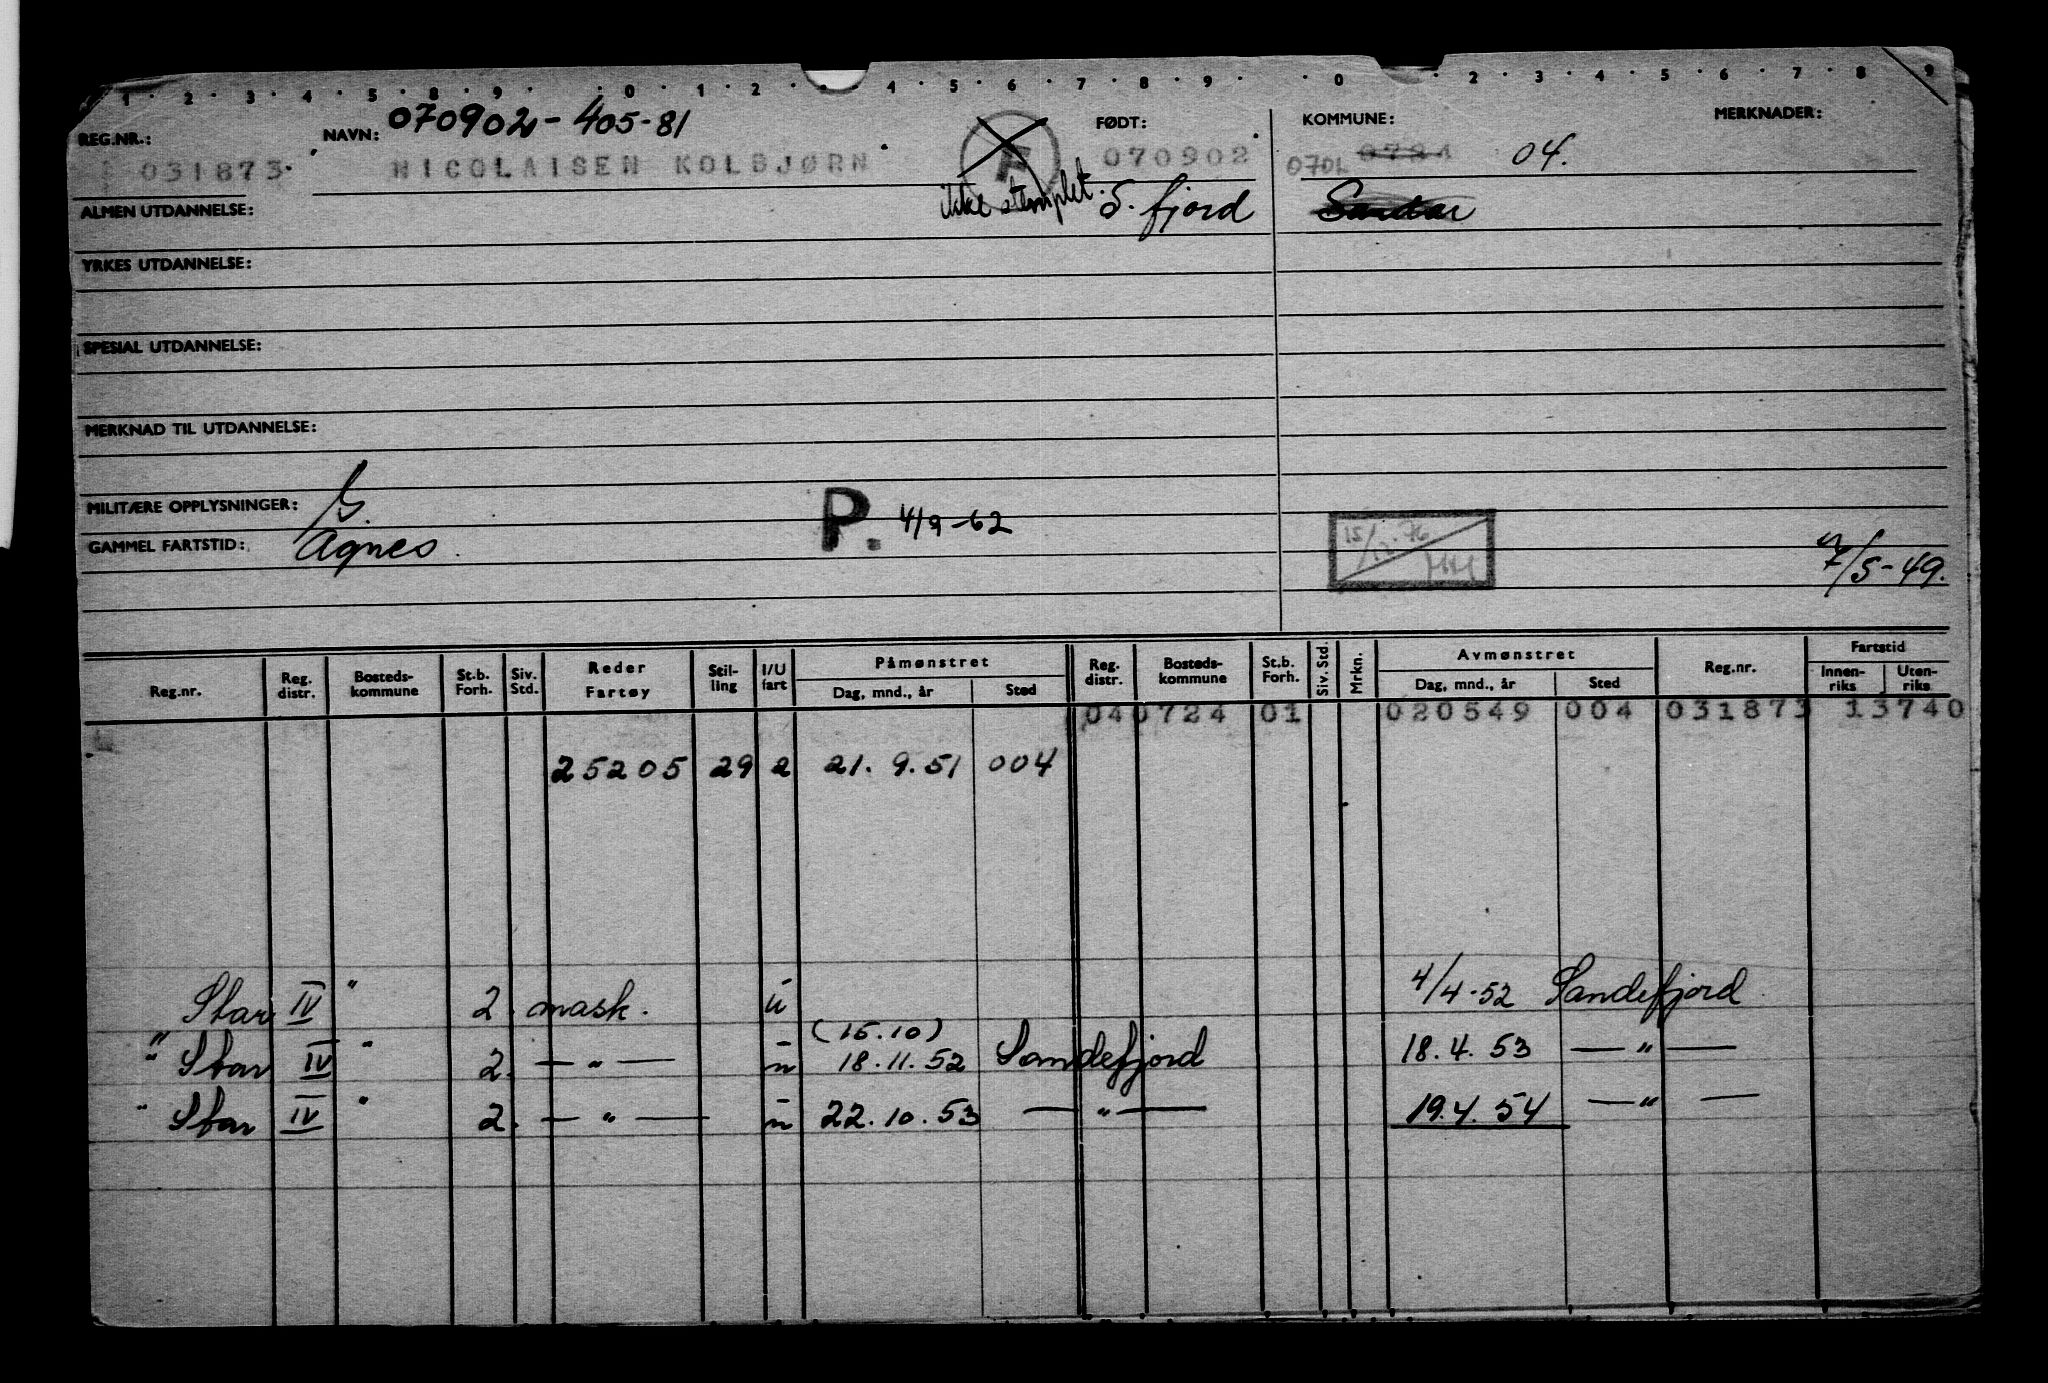 1 2 3 4 5 6 8 9 0 1 2 4 5 6 7 8 9 0 2 3 4 5 6 7 8 9
REG.NR.: NAVN: 070902-405-81 FØDT: KOMMUNE: MERKNADER:
031873 NICOLAISEN KOLBJØRN F 070902 0706 0724 04.
ALMEN UTDANNELSE: ikke stemplet S. fjord Sandar
YRKES UTDANNELSE:
SPESIAL UTDANNELSE:
MERKNAD TIL UTDANNELSE:
MILITÆRE OPPLYSNINGER: P. 4/9-62
GAMMEL FARTSTID: Agnes 15/12.76 7/5-49.
Reg.nr. Reg. distr. Bosteds-kommune St.b. Forh. Siv. Std. Reder Fartøy Stil-ling I/U fart Påmønstret Dag, mnd., år Sted Reg. distr. Bosteds-kommune St.b. Forh. Siv. Std. Mrkn. Avmønstret Dag, mnd., år Sted Reg.nr. Fartstid Innen-riks Uten-riks
040724 01 020549 004 031873 13740
25205 29 2 21. 9. 51 004
Star IV " 2. mask. u 4/4-52 Sandefjord
(15.10)
" Star IV " 2. — " — u 18.11.52 Sandefjord 18.4.53 — " —
" Star IV " 2. — " — u 22.10.53 — " — 19.4.54 — " —